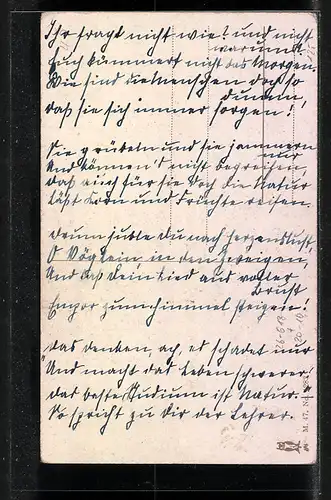 Ihr fragt nicht wie? und nicht
warum?
Euch kümmert nicht das Morgen.
Wie sind die Menschen doch so
dumm,
daß sie sich immer sorgen!
Sie grübeln und sie jammern
nur
Und können's nicht begreifen,
Daß auch für sie doch die Natur
Läßt Korn und Früchte reifen.
Drum juble du nach Herzenslust,
O Vöglein in den Zweigen,
Und laß dein Lied aus voller
Brust
Empor zum Himmel steigen!
Das Denken, ach, es schadet nur
Und macht das Leben schwerer!
Das beste Studium ist Natur.
So spricht zu dir der Lehrer.
M. 17, No.